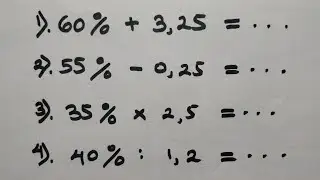 1). 60% + 3,25 = ...
2). 55% - 0,25 = ...
3). 35% x 2,5 = ...
4). 40% : 1,2 = ...